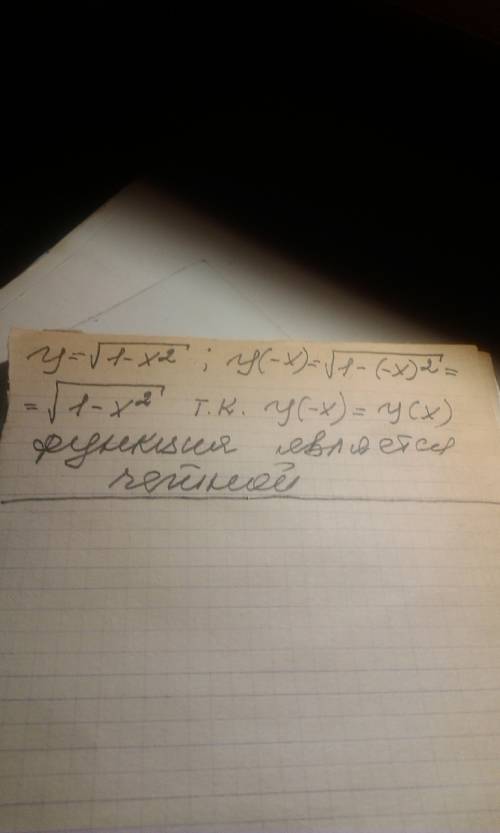 y=√1-x² ; y(-x)=√1-(-x)²=
=√1-x² т.к. y(-x)=y(x)
функция является
четной